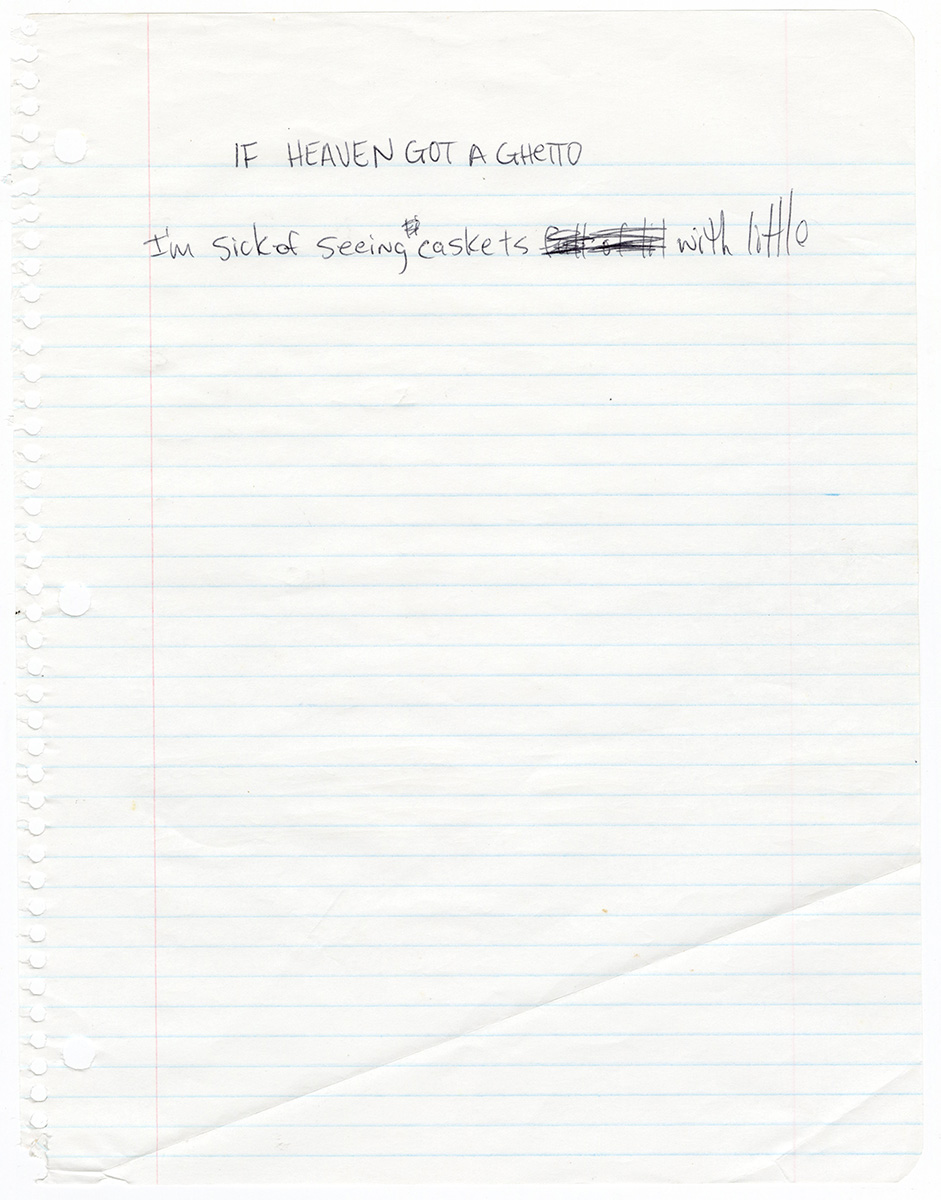 IF HEAVEN GOT A GHETTO
I'm sick of seeing caskets with little